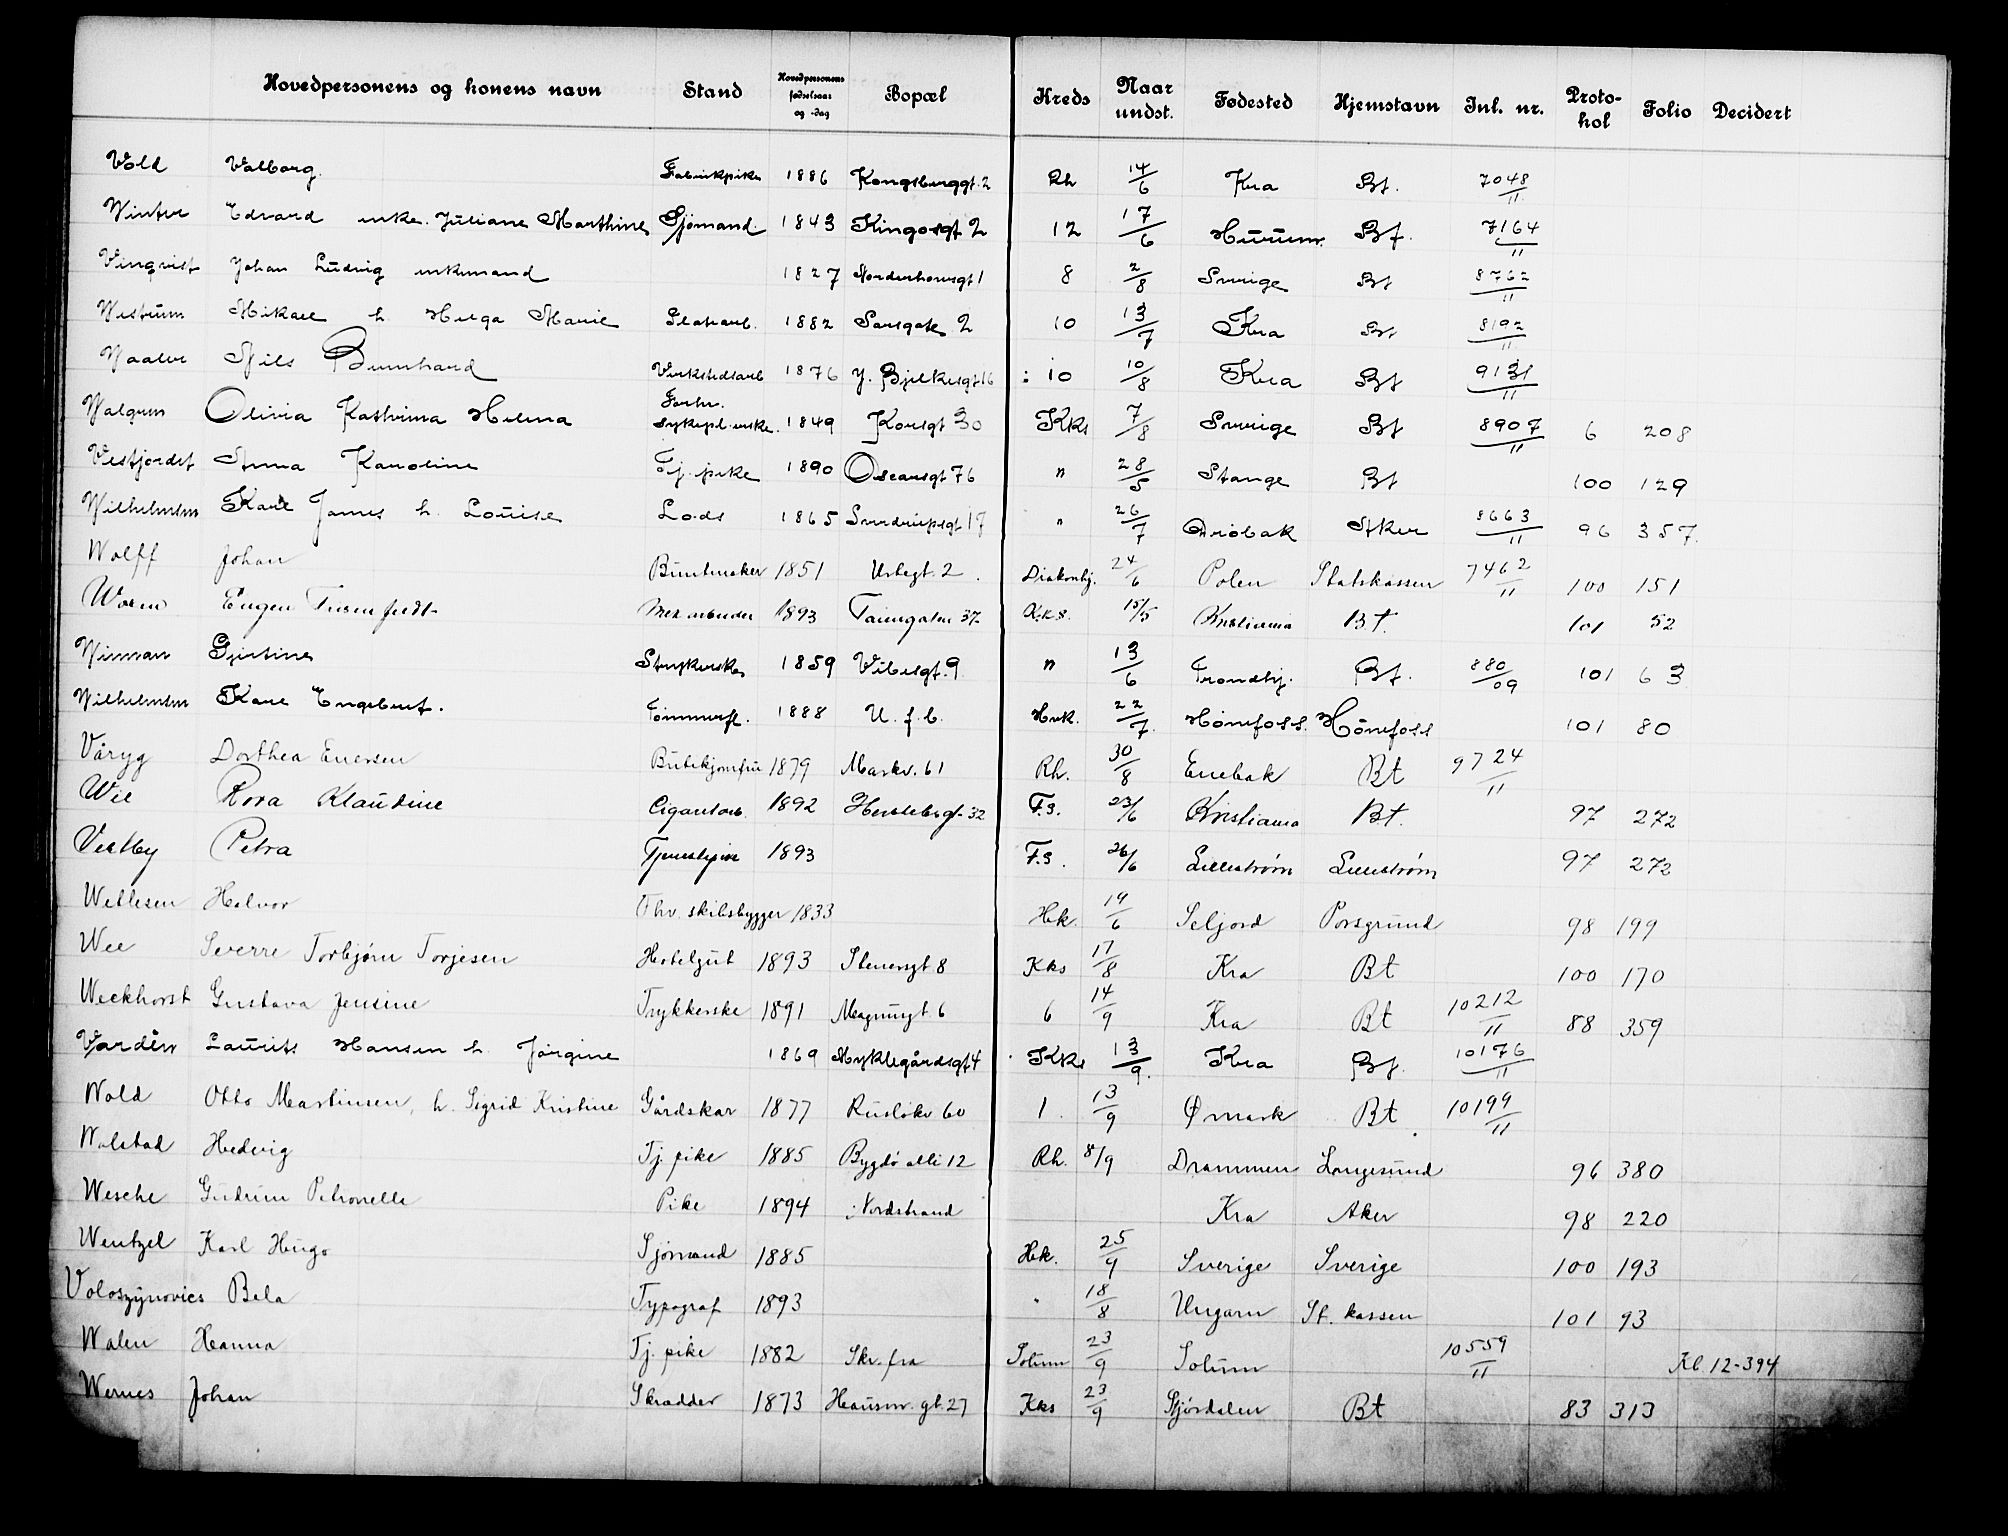 Hovedpersonens og konens navn Stand Hovedpersonens fødselsaar og -dag Bopæl Kreds Naar undst. Fødested Hjemstavn Inl. nr. Protokol Folio Decidert
Vold Valborg. Fabrikpike 1886 Kongsberggt. 2 Rh 14/6 Kra Bt. 7048/11
Winter Edvard enke. Juliane Marthine Sjømand. 1843 Kingosgt 2 12 17/6 Hurum. Bt. 7164/11
Vinqvist Johan Ludvig enkemand 1827 Norderhovsgt 1 8 2/8 Sverige Bt 8762/11
Westrum Mikael h. Helga Marie 1882 Sarsgate 2 10 13/7 Kra Bt 8192/11
Waaler Nils Bernhard Verkstedsarb 1876 J. Bjelkesgt 16 10 10/8 Kra Bt 9131/11
Walgren Olivia Kathrina Helena Forhv. sykepl. enke. 1849 Korsgt 30 Kks 7/8 Sverige Bt 8907/11 6 208
Vestjordet Anna Karoline Tj. pike 1890 Oscarsgt 76 " 28/5 Stange Bt 100 129
Wilhelmsen Karl James h. Louise Lods 1865 Sverdrupsgt 17 " 26/7 Drøbak Aker 8663/11 96 357.
Wolff Johan Buntmaker 1851 2. Diakonhj. 24/6 Polen Statskassen 7462/11 100 151
Worm Eugen Mek arbeider 1893 37 Kks. 15/5 Kristiania Bt. 101 52
Wiman Gjertine Strykerske 1859 Vibesgt. 9 " 13/6 Trondhj. Bt. 880/09 101 63
Wilhelmsen Karl Engebret. Tømmerfl. 1888 U. f. b. Hek. 22/7. Hønefoss. Hønefoss 101 80
Våryg Dorthea Enersen Butikjomfru 1879 Markv. 61 Rh. 30/8 Enebak Bt 9724/11
Wie Rosa Klaudine Cigararb. 1892 Herslebsgt. 32 F.s. 23/6 Kristiania Bt. 97 272
Vestby Petra Tjenestpike 1893 F.s. 26/6 Lillestrøm Lillestrøm 97 272
Wetlesen Halvor Fhv. skibsbygger 1833 Hek. 19/6 Seljord Porsgrund 98 199
Wee Sverre Torbjørn Torjesen Hotelgut 1893 Stenersgt 8 Kks 17/8 Kra Bt 100 170
Weckhorst Gustava Jensine Trykkerske 1891 Magnusgt. 6 6 14/9 Kra Bt 10212/11 88 359
Vardén Laurits Hansen h. Jørgine 1869 Myklegårdsgt 4 Kks 13/9. Kra Bt. 10176/11
Wold Otto Martinsen, h. Sigrid Kristine Gårdskar 1877 Rusløkv 60 1. 13/9 Ømark Bt. 10199/11
Wolstad Hedvig Tj. pike 1885 Bygdø alle 12 Rh. 8/9 Drammen Langesund 96 380
Wesche Gudrun Petronelle Pike 1894 Nordstrand Kra Aker 98 220
Wentzel Karl Hugo Sjømand 1885 Hek. 25/9 Sverige Sverige 100 193
Voloszynovics Bela Typograf 1893 " 18/8 Ungarn St. kassen 101 93
Walen Hanna Tj. pike 1882 Skr. fra Solum 23/9 Solum 10559/11 Kl. 12-394
Wernes Johan Skrædder 1873 Hausm. gt. 27 Kks 23/9 Stjørdalen Bt 83 313